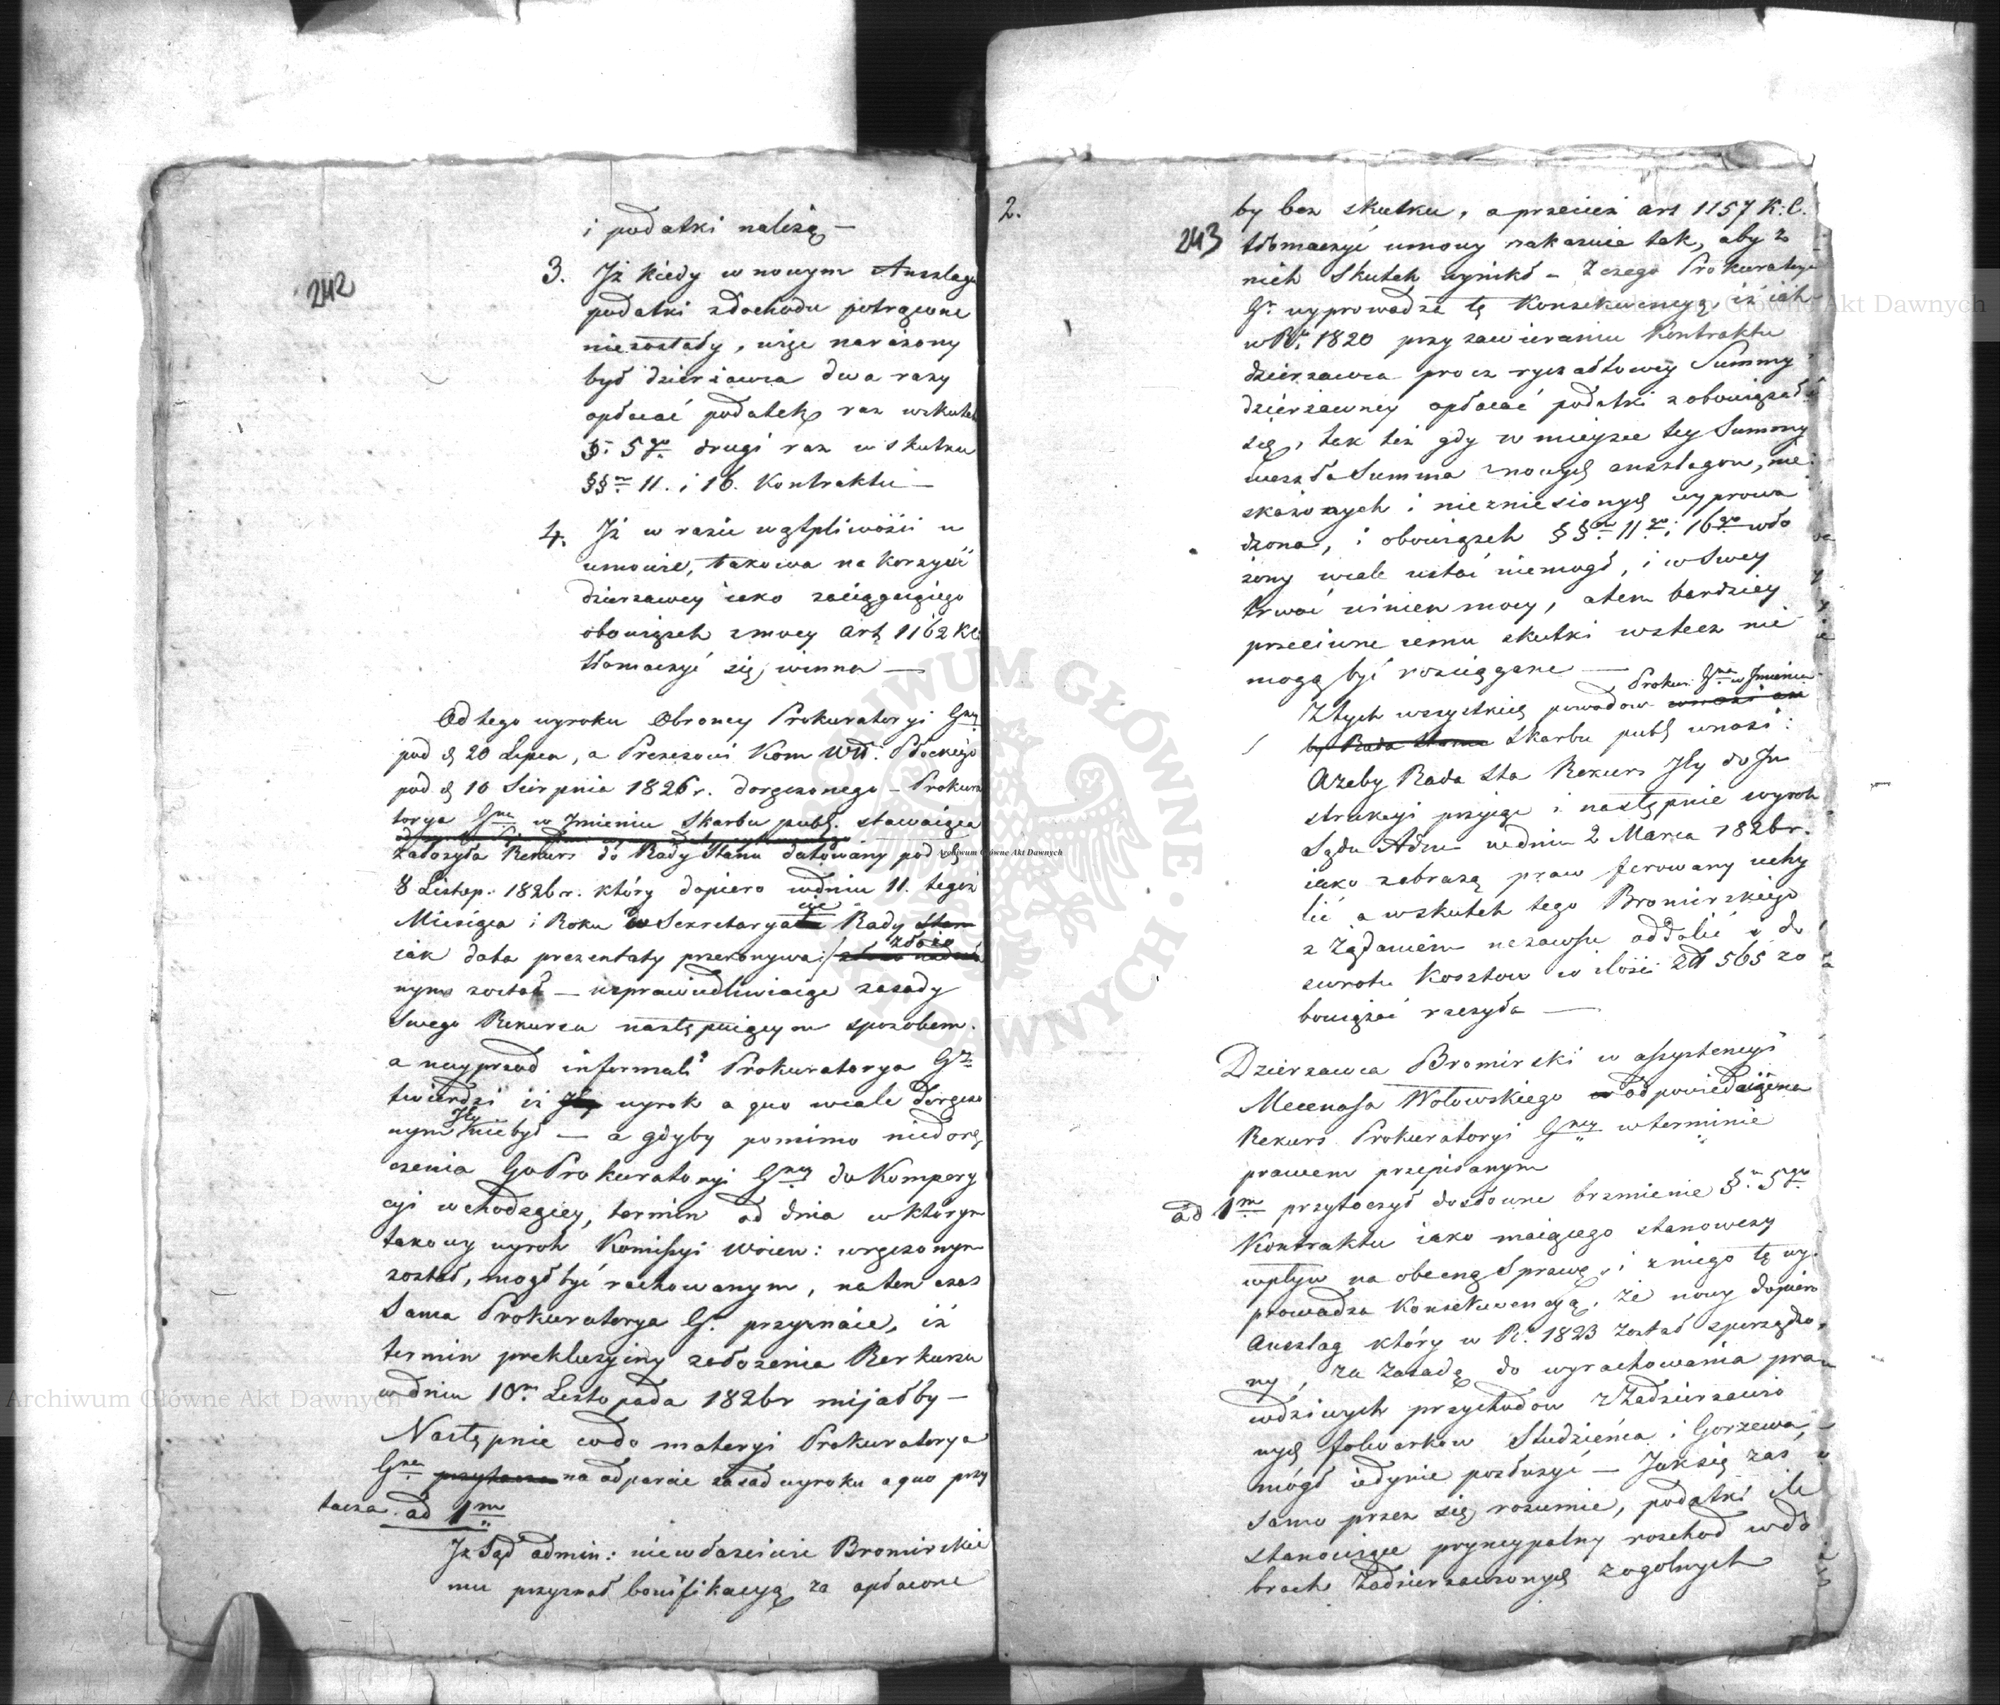 242
i podatki należą —
3. Iż kiedy w nowym Anszlagu
podatki z dochodu potrącone
niezostały, więc narażony
był dzierżawca dwa razy
opłacać podatek raz wskutek
§ 5go drugi raz w skutku
§§ 11. i 16. Kontraktu —
4. Iż w razie wątpliwości w
umowie, takowa na korzyść
dzierzawcy iako zaciągaiącego
obowiązek zmocy art 1162 KC
tłomaczyć się winna —
Od tego wyroku Obroncy Prokuratoryi Gney
pod d 20 Lipca, a Prezesowi Kom Wd. Płockiego
pod d 10 Sierpnia 1826 r. doręczonego — Prokura
torya Gna w Imieniu Skarbu publ. stawaiąca
założyła Rekurs do Rady Stanu datowany pod d
8 Listop. 1826 r. który dopiero wdniu 11. tegoż
Miesiąca i Roku w Sekretaryacie Rady Stanu
iak data prezentaty przekonywa; złożo
nym został — usprawiedliwiaiąc zasady
swego Rekursu następuiącym sposobem.
a nayprzod informali Prokuratorya Gna
twierdzi iż wyrok a quo wcale doręczo
nym Jey niebył — a gdyby pomimo niedorę
czenia Go Prokuratoryi Gney do Kompery
cyi wchodzącey, termin od dnia wktórym
takowy wyrok Komissyi Woiew: wręczonym
został, mogł być rachowanym, na ten czas
sama Prokuratorya G. przyznaie, iż
termin prekluzyiny założenia Rekursu
wdniu 10m Listopada 1826 r mijałby —
Następnie codo materyi Prokuratorya
Gna przytacza na odparcie zasad wyroku a quo przy
tacza ad 1m
Iż Sąd admin: niewłaściwie Bromirskie
mu przyznał bonifikacyą za opłacone
2.
243
by bez skutku, a przecież art 1157 K: C.
tłomaczyć umowy nakazuie tak, aby z
nich skutek wynikł — Z czego Prokuratorya
G. wyprowadza tę Konsekwencyą, iż iak
w R. 1820 przy zawieraniu Kontraktu
dzierzawca procz ryczałtowey Summy
dzierżawney opłacać podatki zobowiązał
się, tak też gdy w mieysce tey Summy
weszła Summa z nowych anszlagow, nie
skażonych i niezniesionych wyprowa
dzona, i obowiązek §§ 11go i 16go wło
żony wcale ustać niemogł, i w swey
trwać winien mocy, a tem bardziey
przeciwne iemu skutki wstecz nie
mogą być rosciągane —
Prokur. Gna w Imieniu
Z tych wszystkich powodow wnosi aże
by Rada Stanu Skarbu publ wnosi:
Ażeby Rada Sta Rekurs Jey do In
strukcyi przyięła i następnie wyrok
Sądu Adm wdniu 2 Marca 1826 r.
iako z obrazą praw ferowany uchy
lić a wskutek tego Bromirskiego
z żądaniem nazawsze oddalić i do
zwrotu Kosztow w ilości Zł 565 zo
bowiązać raczyła —
Dzierzawca Bromirski w assystencyi
Mecenasa Wołowskiego odpowiedaiąc na
Rekurs Prokuratoryi Gney wterminie
prawem przepisanym
ad 1m przytoczył dosłowne brzmienie § 5go
Kontraktu iako maiącego stanowczy
wpływ na obecną Sprawę, i zniego tę wy
prowadza Konsekwencyą, że nowy dopiero
Anszlag który w R. 1823 został sporządzo
ny, za zasadę do wyrachowania praw
wdziwych przychodow z Zadzierzawio
nych folwarkow Studzieńca i Gorzewa,
mógł iedynie posłużyć — Jak się zaś
samo przez się rozumie, podatki ile
stanowiące pryncypalny rozchod wdo
brach Zadzierzawionych z ogolnych